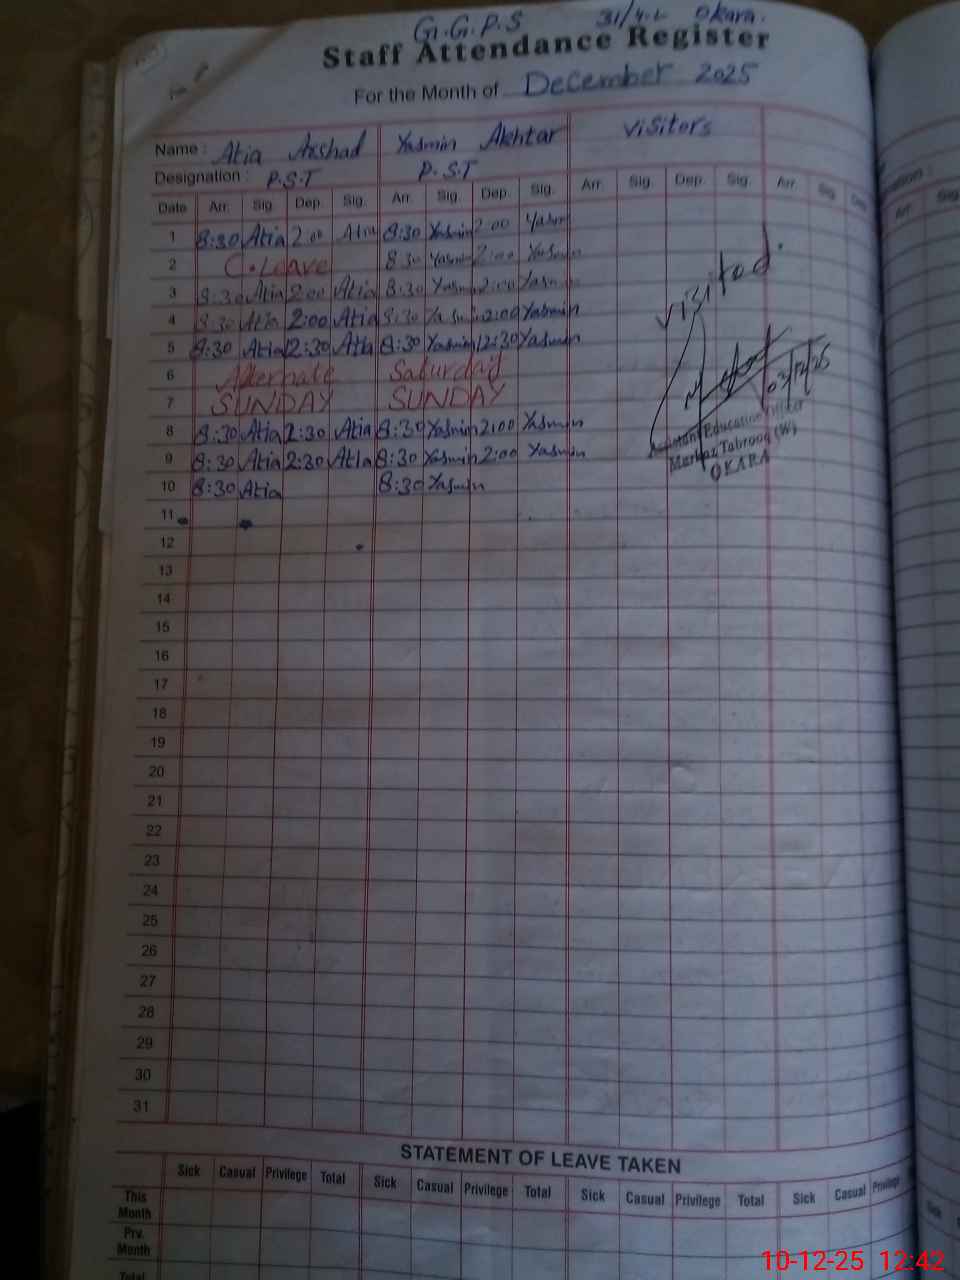 G.G.P.S 31/4.L Okara.
Staff Attendance Register
For the Month of December 2025
Name : Atia Arshad Yasmin Akhtar Visitors
Designation : P.S.T P.S.T
Date Arr. Sig. Dep. Sig. Arr. Sig. Dep. Sig. Arr. Sig. Dep. Sig. Arr. Sig. Dep.
1 8:30 Atia 2:00 Atia 8:30 Yasmin 2:00 Yasmin
2 C.Leave 8:30 Yasmin 2:00 Yasmin
3 8:30 Atia 2:00 Atia 8:30 Yasmin 2:00 Yasmin
4 8:30 Atia 2:00 Atia 8:30 Yasmin 2:00 Yasmin
5 8:30 Atia 12:30 Atia 8:30 Yasmin 12:30 Yasmin
6 Alternate Saturday
7 SUNDAY SUNDAY
8 8:30 Atia 2:30 Atia 8:30 Yasmin 2:00 Yasmin
9 8:30 Atia 2:30 Atia 8:30 Yasmin 2:00 Yasmin
10 8:30 Atia 8:30 Yasmin
visited.
03/12/25
Assistant Education Officer
Markaz Tabrooq (W)
OKARA
11
12
13
14
15
16
17
18
19
20
21
22
23
24
25
26
27
28
29
30
31
STATEMENT OF LEAVE TAKEN
Sick Casual Privilege Total Sick Casual Privilege Total Sick Casual Privilege Total Sick Casual Privilege
This Month
Prv. Month
Total
Arr. Sig.
Sick
10-12-25 12:42